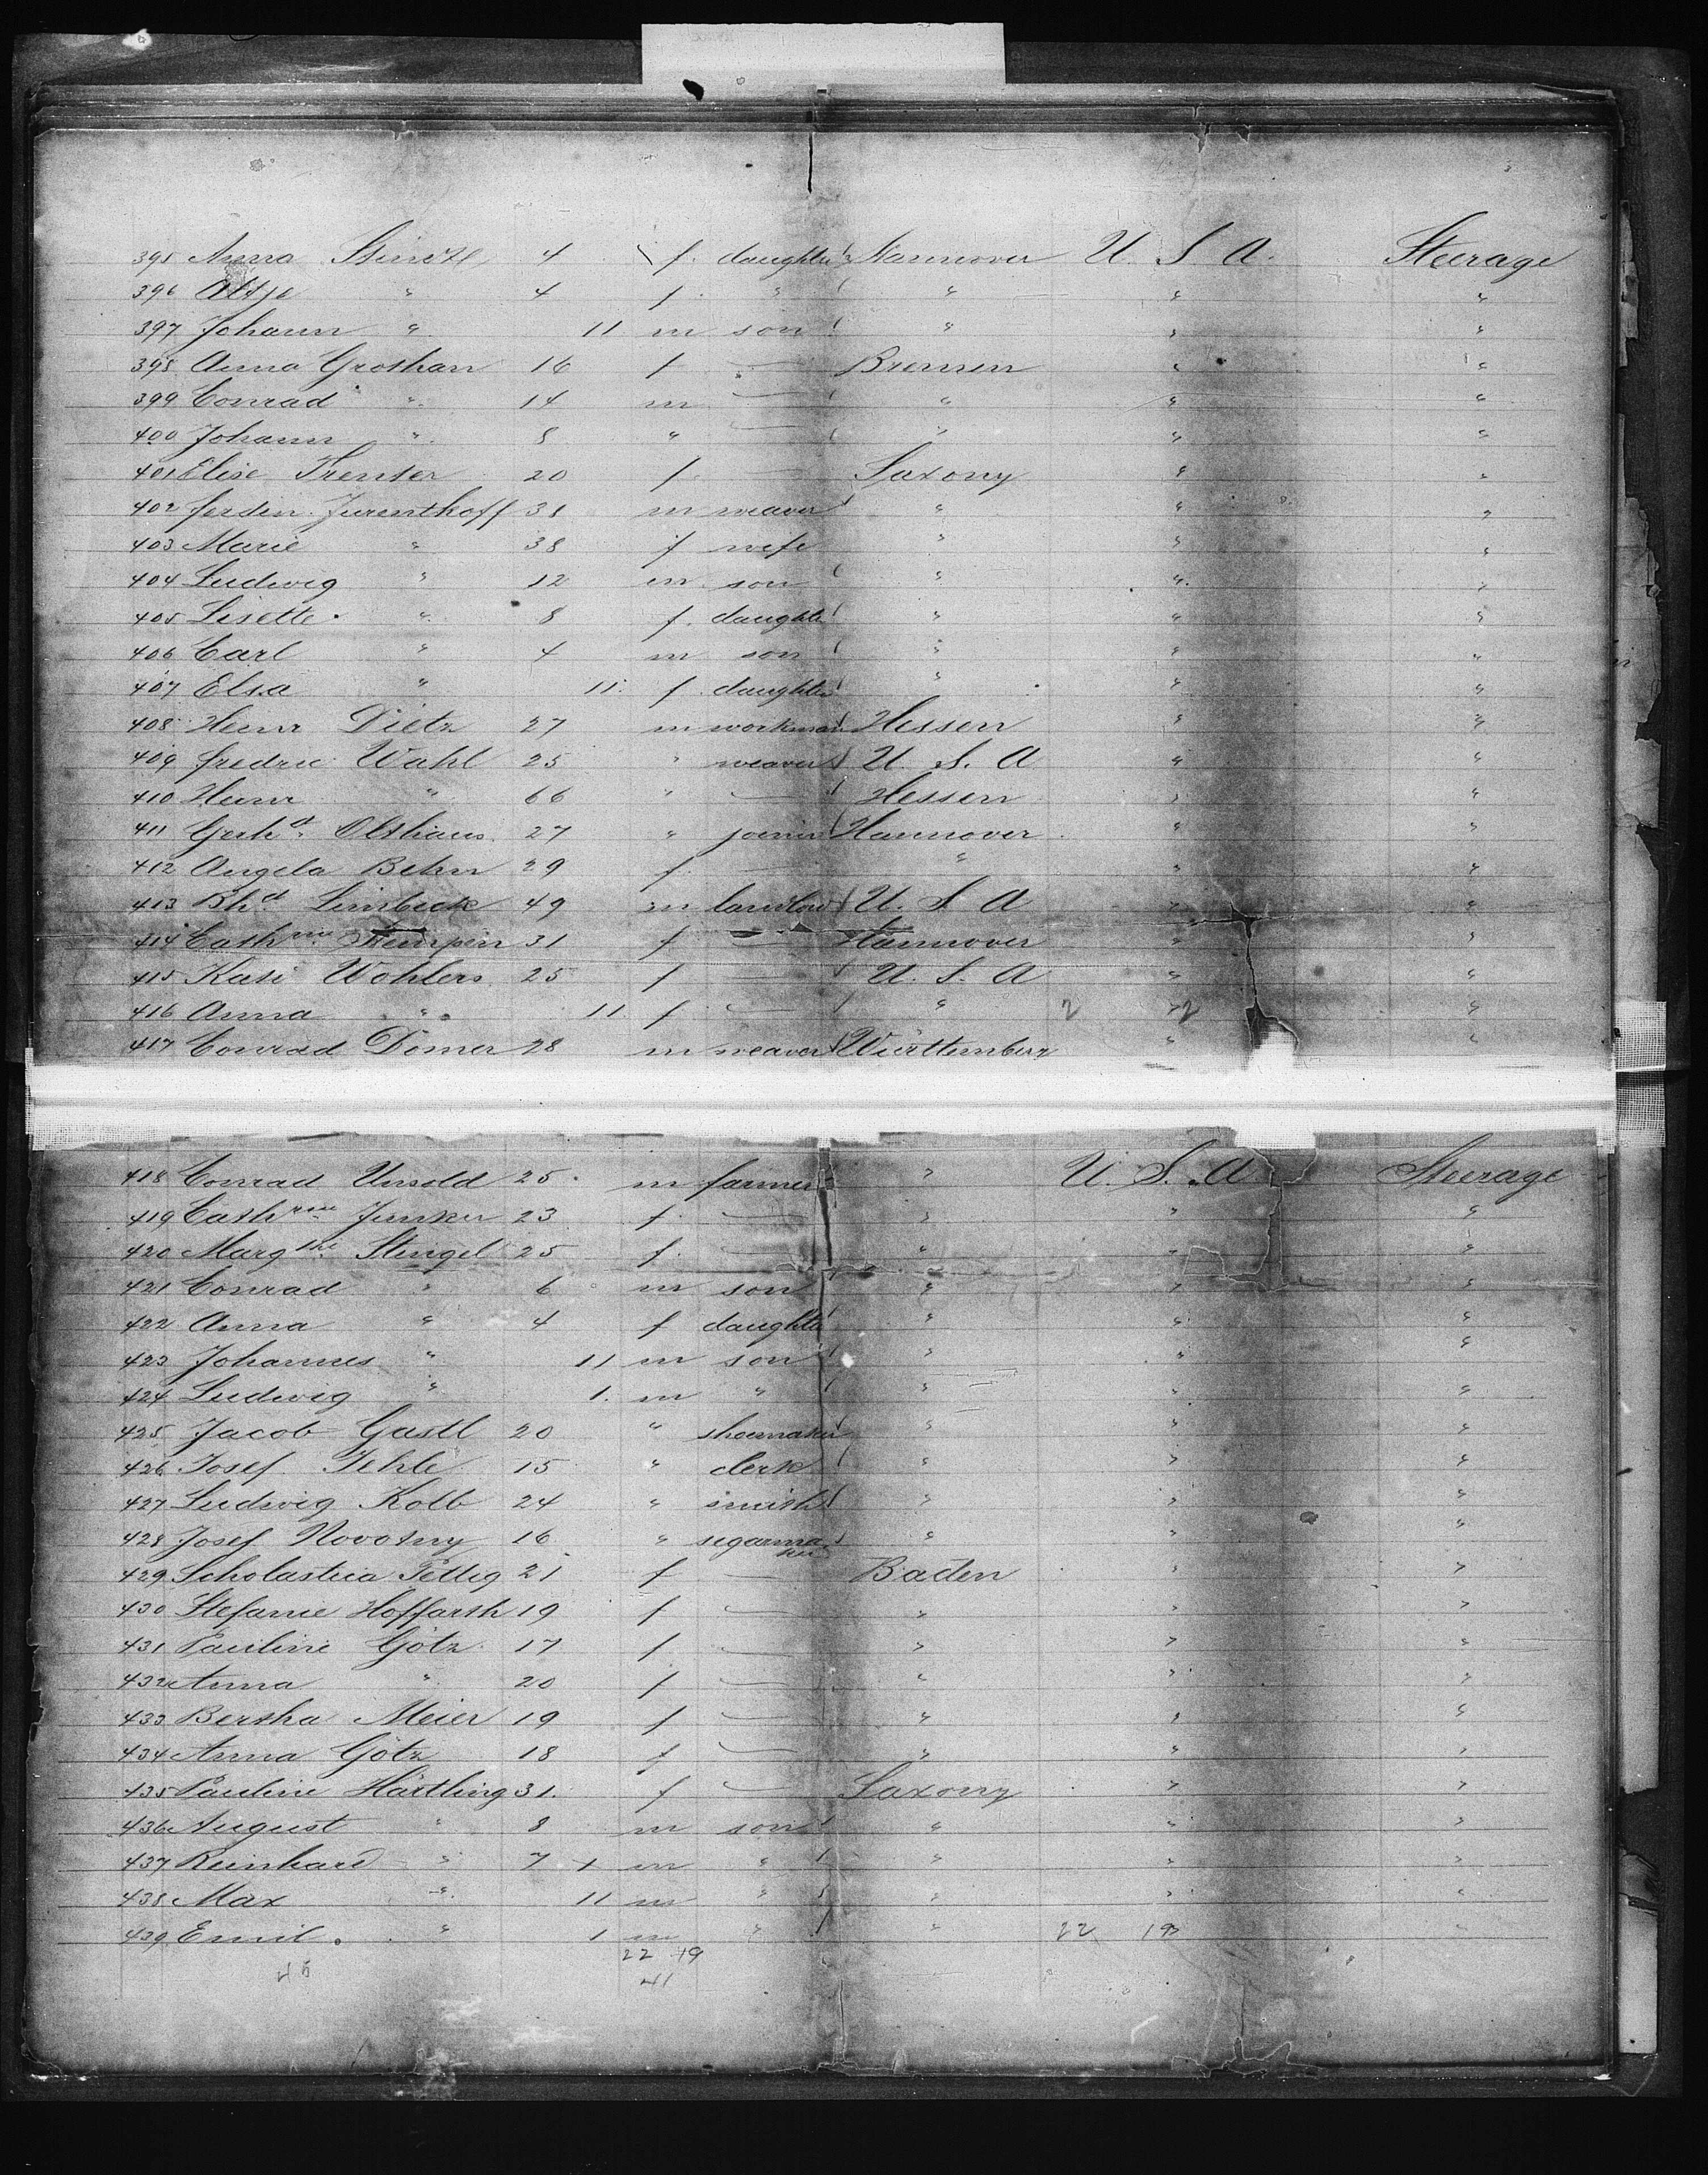 395 Anna 4 f. daughter Hannover U. S. A. Steerage
396 Altje " 4 f. " " " "
397 Johann " 11 m son " " "
398 Anna Groshan 16 f — Bremen " "
399 Conrad " 14 m — " " "
400 Johann " 8 " — " " "
401 Elise 20 f. — Saxony " "
402 Ferdin. Jurenthoff 31 m weaver " " "
403 Marie " 38 f wife " " "
404 Ludwig " 12 m son " " "
405 Lisette " 8 f. daughter " " "
406 Carl " 4 m son " " "
407 Elsa " 11. f. daughter " " "
408 Heinr Dietz 27 m workman Hessen " "
409 Fredric Wahl 25 " weaver U. S. A " "
410 Heinr " 66 " — Hessen " "
411 Gerhd. Olthaus 27 " joiner Hannover " "
412 Angela Behn 29 f. — " " "
413 Limbeck 49 m U. S. A " "
414 Cathrine 31 f — Hannover " "
415 Kati Wohlers 25 f — U. S. A " "
416 Anna " 11. f — " 2 " 2 "
417 Conrad Domer 28 m weaver Württemberg " "
418 Conrad Unsold 25 m farmer " U. S. A Steerage
419 Cathrine Junker 23 f — " " "
420 Margthe Stengel 25 f. — " " "
421 Conrad " 6 m son " " "
422 Anna " 4 f daughter " " "
423 Johannes " 11 m son " " "
424 Ludwig " 1. m " " " "
425 Jacob Gastl 20 " shoemaker " " "
426 Josef Jehle 15 " clerk " " "
427 Ludwig Kolb 24 " smith " " "
428 Josef Novotny 16 " segarmaker " " "
429 Scholastica Pettig 21 f — Baden " "
430 Stefanie Hoffarth 19 f — " " "
431 Pauline Götz 17 f — " " "
432 Anna " 20 f — " " "
433 Bertha Meier 19 f — " " "
434 Anna Götz 18 f — " " "
435 Pauline Härtling 31. f — Saxony " "
436 August " 8 m son " " "
437 Reinhard " 7 m " " " "
438 Max " 11 m " " " "
439 Emil " 1 m " " 22 19 " "
22 19
41